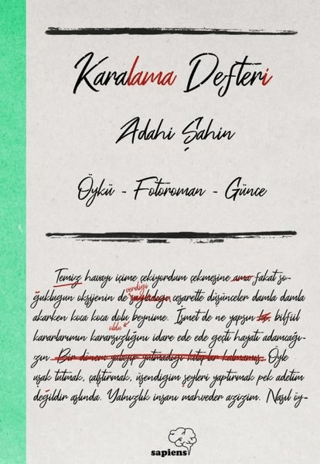 Karalama Defteri
Adahi Şahin
Öykü - Fotoroman - Günce
Temiz havayı içime çekiyordum çekmesine ama fakat so-
verdiği
ğukluğun oksijenin de cesarette düşünceler damla damla
akarken koca koca dolu beynime. İsmet de ne yapsın bilfiil
oldu
kararlarımın kararsızlığını idare ede ede geçti hayatı adamcağı-
zın. Bir dönem yatayıp yatmadığı kitaplar kalmamış. Öyle
uşak tutmak, çalıştırmak, üşendiğim şeyleri yaptırmak pek adetim
değildir aslında. Yalnızlık insanı mahveder azizim. Nasıl iy-
sapiens